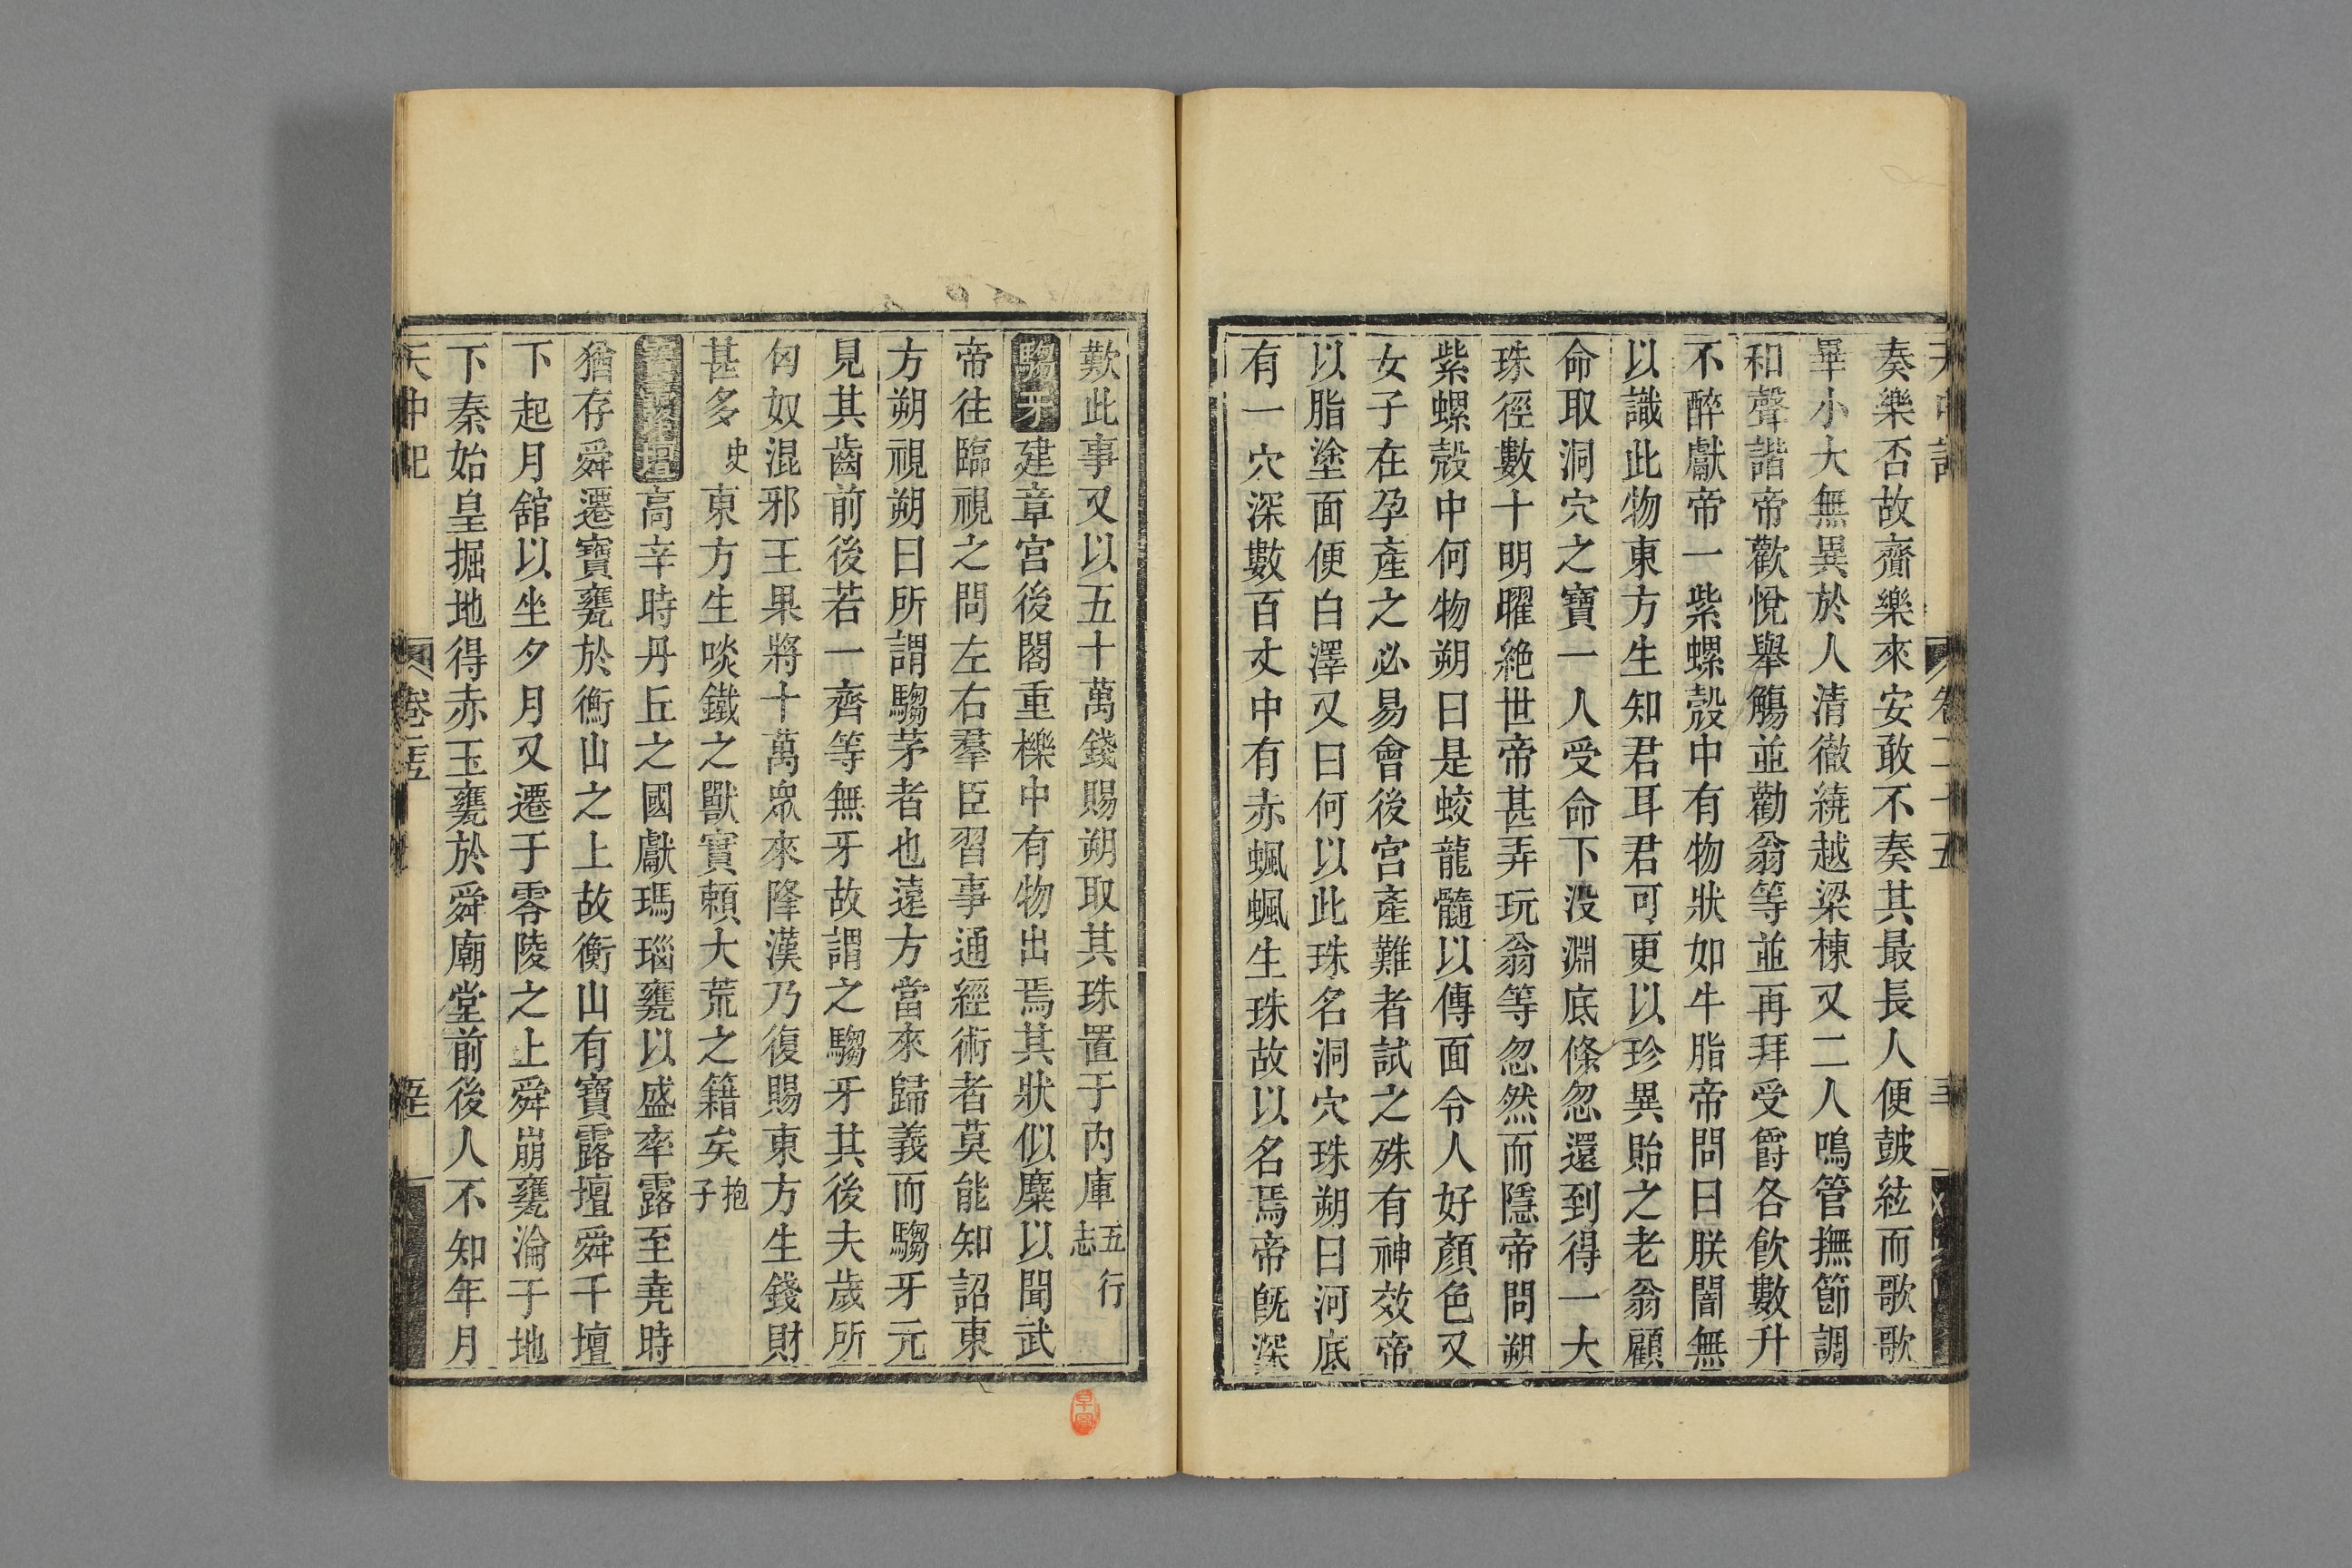 奏樂否故齎樂來安敢不奏其最長人便鼓絃而歌歌
畢小大無異於人清徹繞越梁棟又二人鳴管撫節調
和聲諧帝歡悅舉觴並勸翁等並再拜受爵各飲數升
不醉獻帝一紫螺殼中有物狀如牛脂帝問曰朕闇無
以識此物東方生知君耳君可更以珍異貽之老翁顧
命取洞穴之寶一人受命下没淵底倐忽還到得一大
珠徑數十明曜絶世帝甚弄玩翁等忽然而隱帝問朔
紫螺殼中何物朔曰是蛟龍髓以傅面令人好顏色又
女子在孕產之必易會後宮產難者試之殊有神效帝
以脂塗面便白澤又曰何以此珠名洞穴珠朔曰河底
有一穴深數百丈中有赤蜽蜽生珠故以名焉帝旣深
歎此事又以五十萬錢賜朔取其珠置于內庫五行志
騶牙建章宮後閣重櫟中有物出焉其狀似麋以聞武
帝往臨視之問左右羣臣習事通經術者莫能知詔東
方朔視朔曰所謂騶茅者也遠方當來歸義而騶牙元
見其齒前後若一齊等無牙故謂之騶牙其後夫歲所
匈奴混邪王果將十萬衆來降漢乃復賜東方生錢財
甚多史東方生啖鐵之獸實賴大荒之籍矣抱子
高辛時丹丘之國獻瑪瑙甕以盛率露至堯時
猶存舜遷寶甕於衡山之上故衡山有寶露壇舜千壇
下起月舘以坐夕月又遷于零陵之上舜崩甕淪于地
下秦始皇掘地得赤玉甕於舜廟堂前後人不知年月
天中記
卷二十五